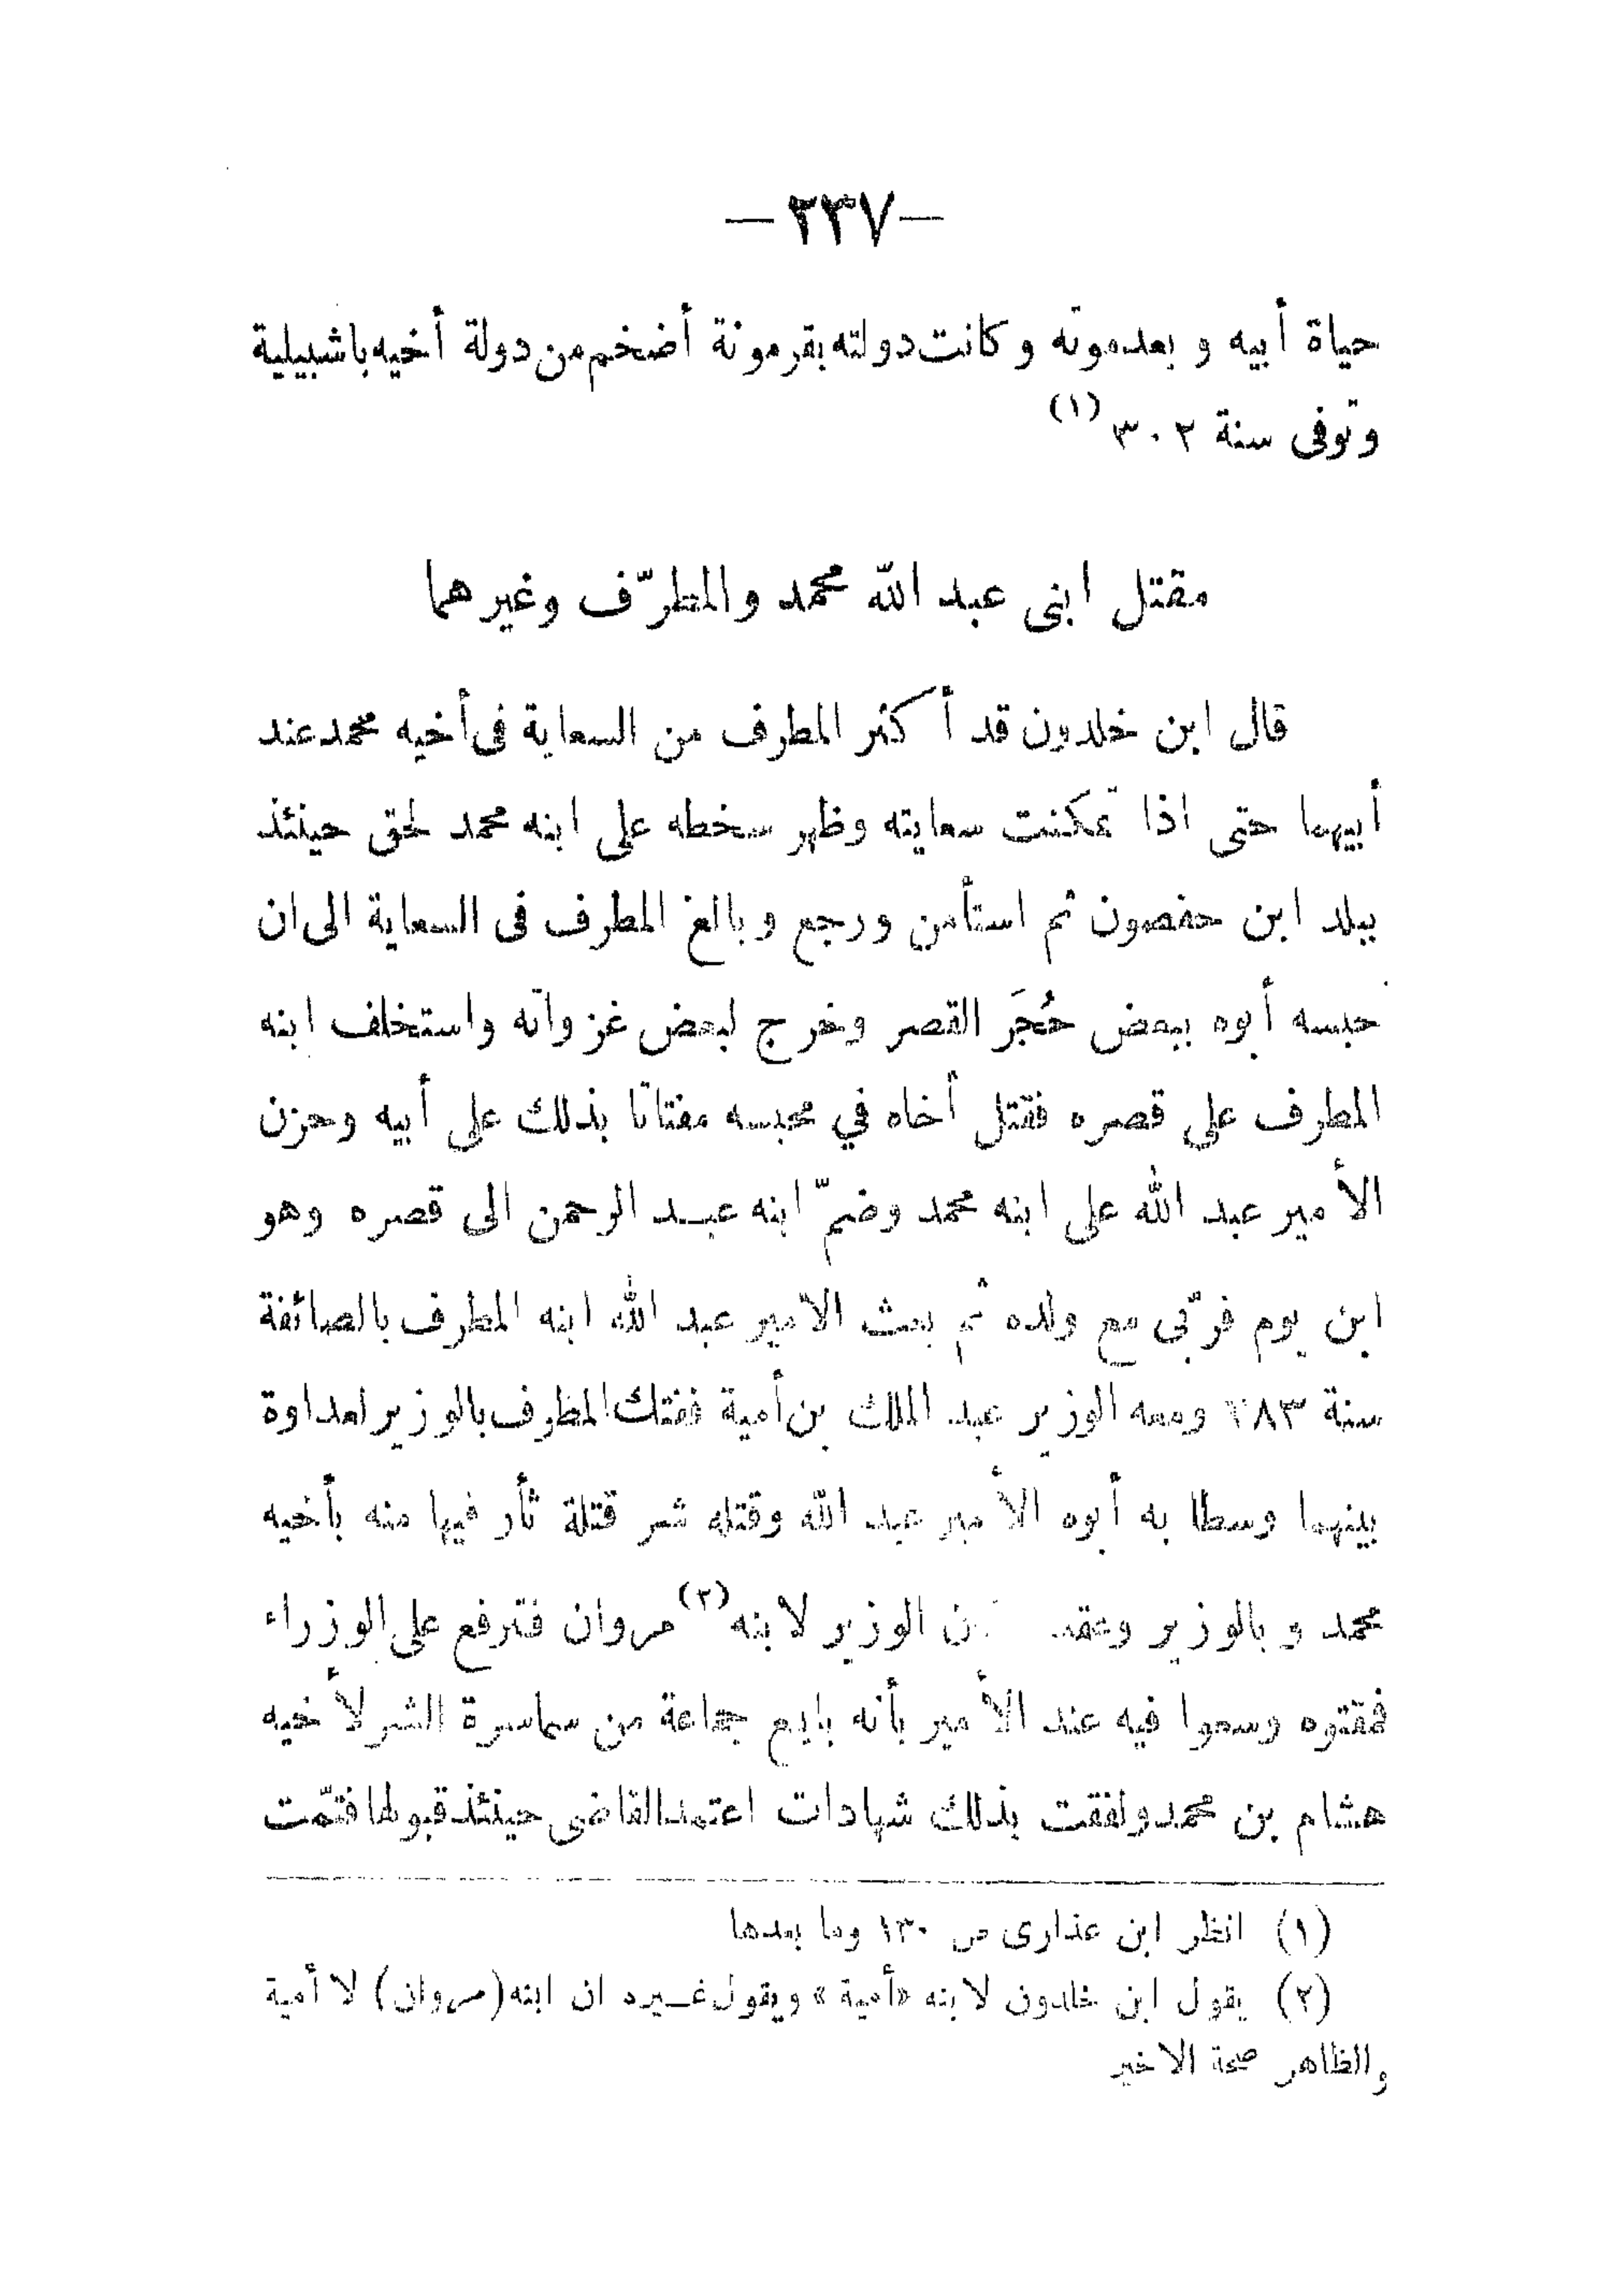 — ٢٣٧ —
حياة أبيه و بعد موته و كانت دولته بقرمونة أضخم من دولة أخيه باشبيلية
وتوفى سنة ٣٠٢ (١)
مقتل ابنى عبد الله محمد والمطرّف وغيرهما
قال ابن خلدون قد أكثر المطرف من السعاية فى أخيه محمد عند
أبيهما حتى اذا تمكنت سعايته وظهر سخطه على ابنه محمد لحق حينئذ
ببلد ابن حفصون ثم استأمن ورجع وبالغ المطرف فى السعاية الى ان
حبسه أبوه ببعض حُجَر القصر وخرج لبعض غزواته واستخلف ابنه
المطرف على قصره فقتل أخاه في محبسه مفتاتا بذلك على أبيه وحزن
الأمير عبد الله على ابنه محمد وضمّ ابنه عبد الرحمن الى قصره وهو
ابن يوم فربّى مع ولده ثم بعث الأمير عبد الله ابنه المطرف بالصائفة
سنة ٢٨٣ ومعه الوزير عبد الملك بن أمية ففتك المطرف بالوزير لعداوة
بينهما وسطا به أبوه الأمير عبد الله وقتله شر قتلة ثأر فيها منه بأخيه
محمد و بالوزير وعقد الوزير لابنه (٢) مروان فترفع على الوزراء
فمقتوه وسعوا فيه عند الأمير بأنه بايع جماعة من سماسرة الشر لأخيه
هشام بن محمد ولفقت بذلك شهادات اعتمد القاضى حينئذ قبولها فتمّت
(١) انظر ابن عذارى ص ١٣٠ وما بعدها
(٢) يقول ابن خلدون لابنه «أمية» ويقول غيره ان ابنه (مروان) لا أمية
والظاهر صحة الاخير